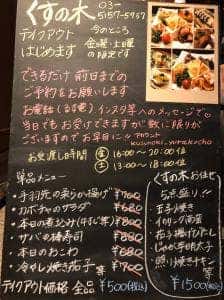 くすの木
03-5157-5967
テイクアウト
はじめます
今のところ
金曜・土曜日
の限定です
できるだけ 前日までの
ご予約をお願いします
お電話(くる電)インスタ等へのメッセージで
当日でもお受けできますが 数に限りが
ございますので お早目に アカウント
kusunoki_yurakucho
お受渡し時間
金 16:00〜20:00位
土 13:00〜18:00位
単品メニュー
・手羽先の柔らか揚げ ¥700
・カボチャのサラダ ¥680
・本日の煮込み(村じん等) ¥800
・サバの棒寿司 ¥780
・本日のおこわ ¥680
・冷やし焼き茄子 等 ¥700
テイクアウト価格 全品 ¥500(税込)
くすの木 お任せ
5点盛り!!
玉子焼き
イカリング南蛮
茄子揚げびたし
じゃが芋明太子
照り焼きチキン
等
¥1500(税込)